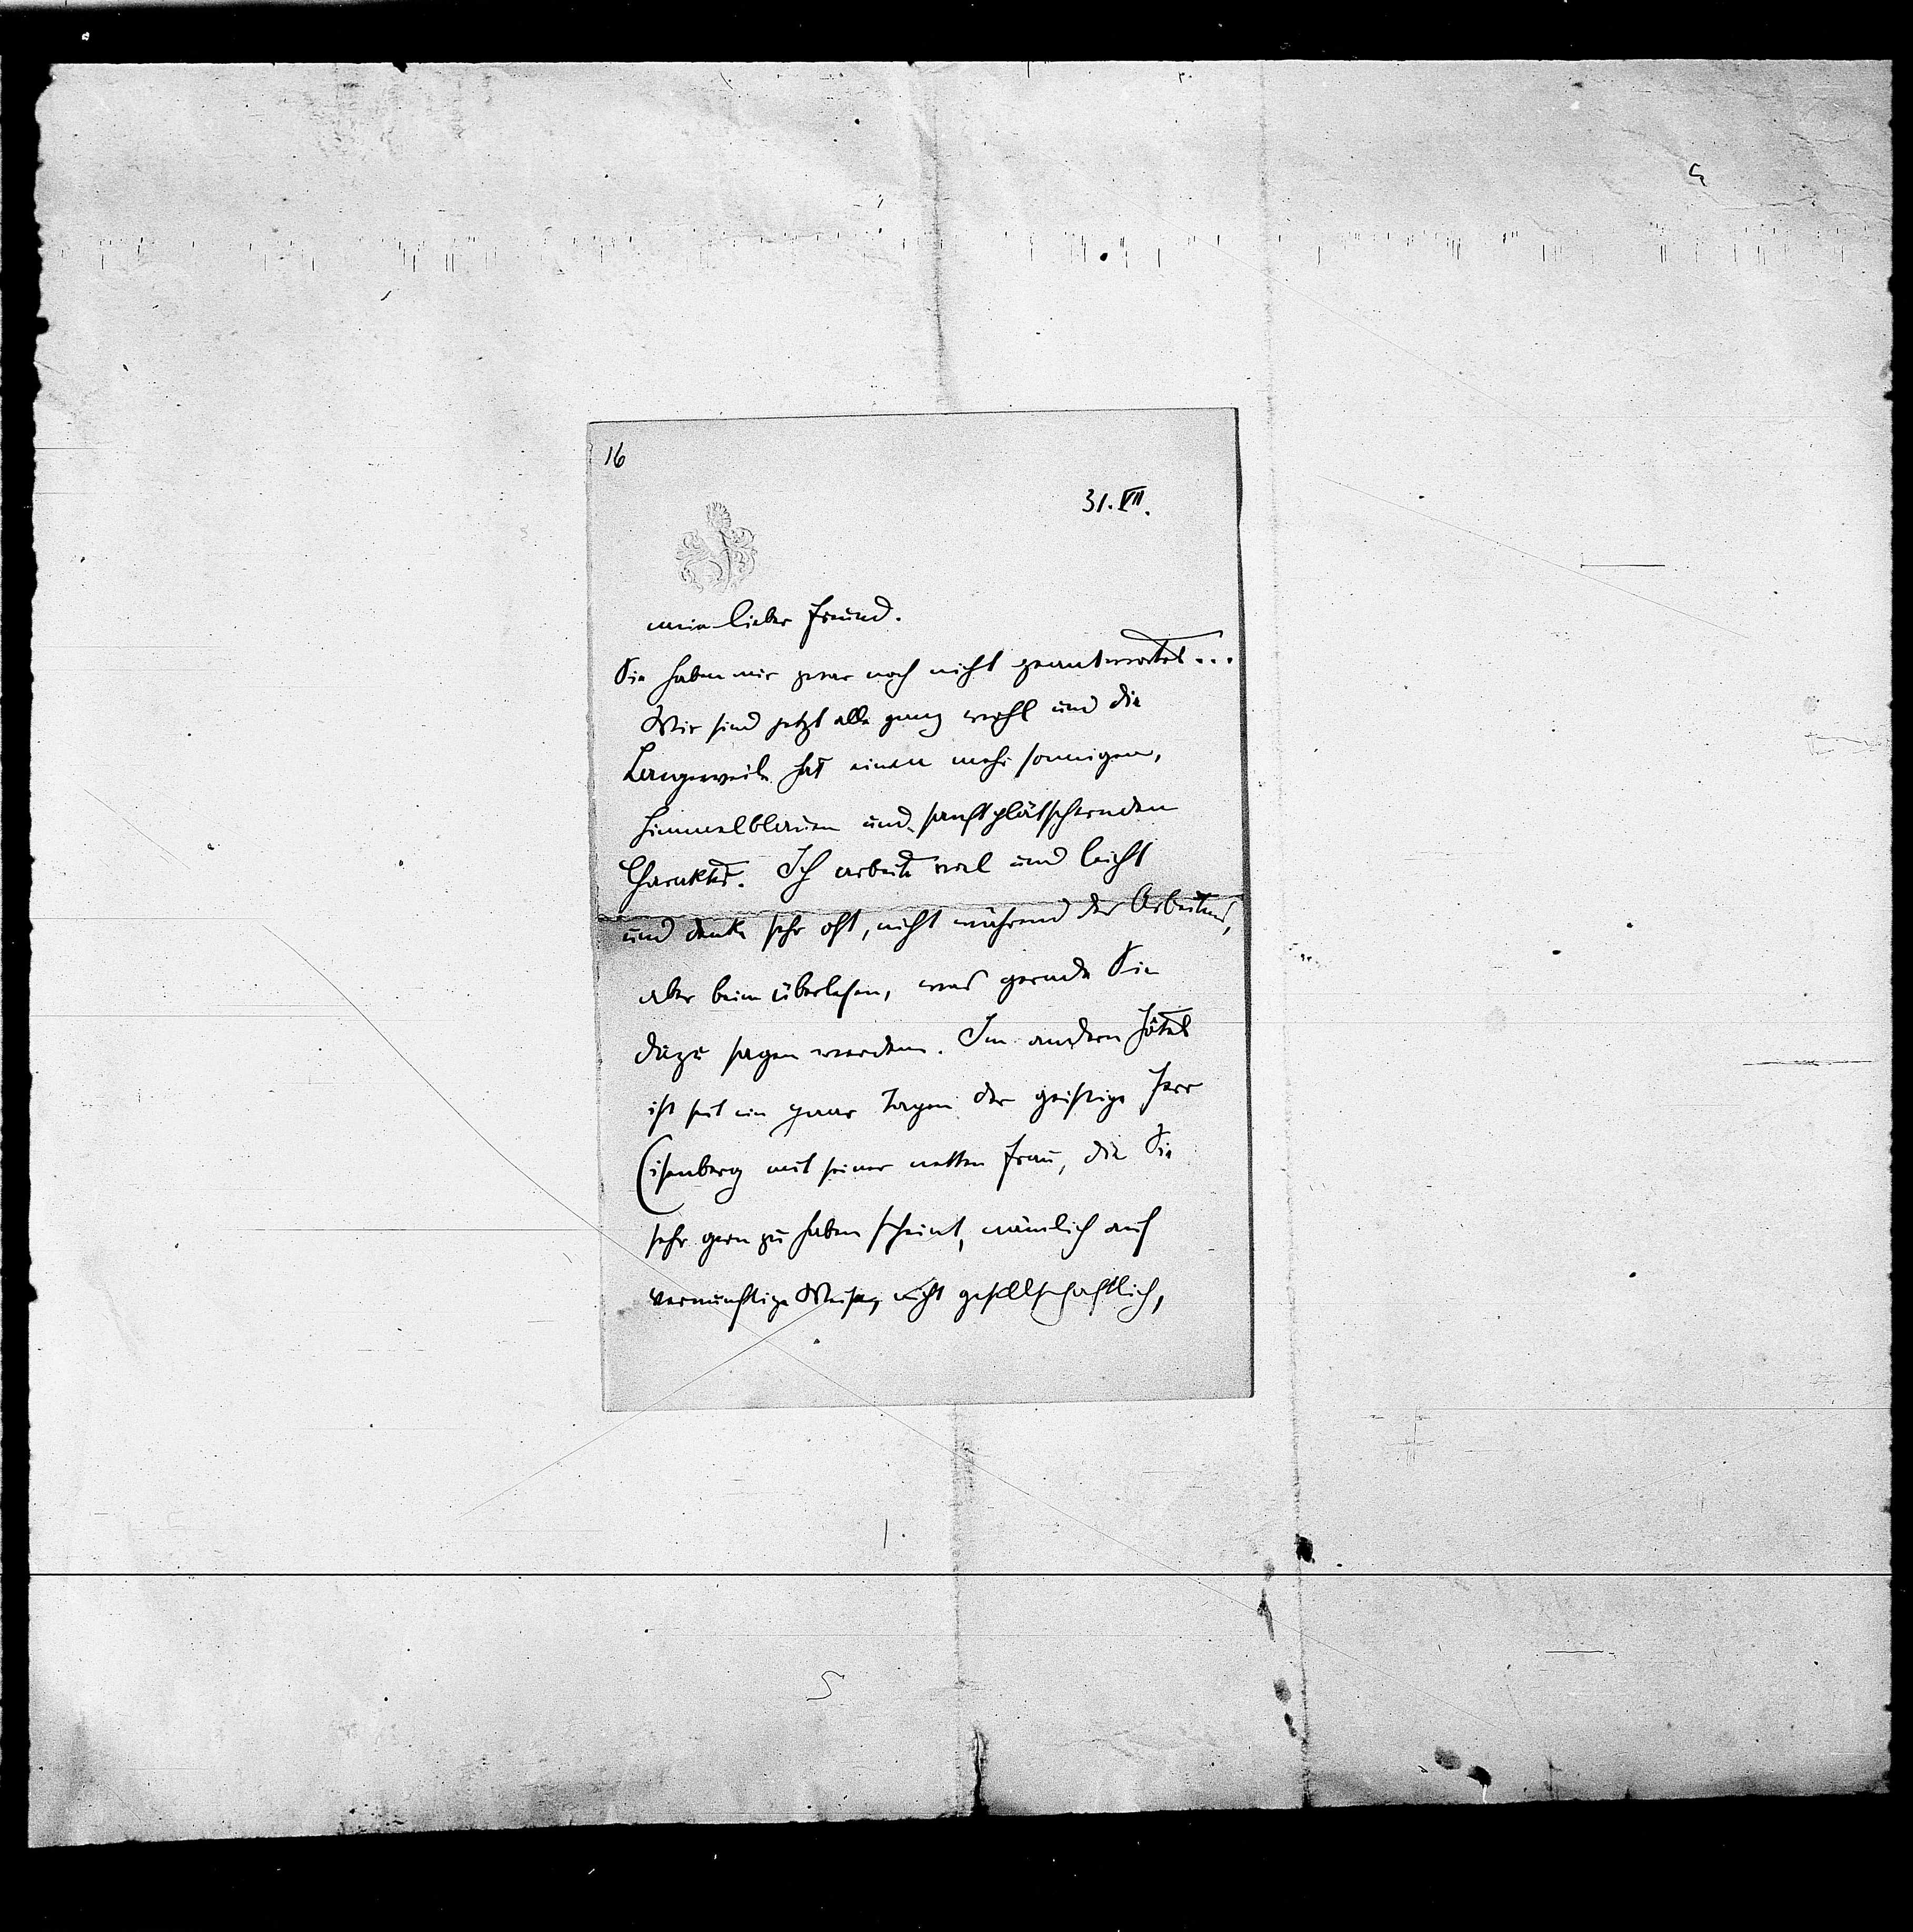 16
31. VII.
mein lieber Freund.
Sie haben mir zwar noch nicht geantwortet...
Wir sind jetzt alle ganz wohl und die
Langeweile hat einen mehr sonnigen,
himmelblauen und sanft plätschernden
Charakter. Ich arbeite viel und leicht
und denke sehr oft, nicht während des Arbeitens,
aber beim überlesen, was gerade Sie
dazu sagen werden. Im andern Hôtel
ist seit ein paar Tagen der geistige Herr
Eisenberg mit seiner netten Frau, die Sie
sehr gern zu haben scheint, nämlich auf
vernünftige Weise, nicht gesellschaftlich,